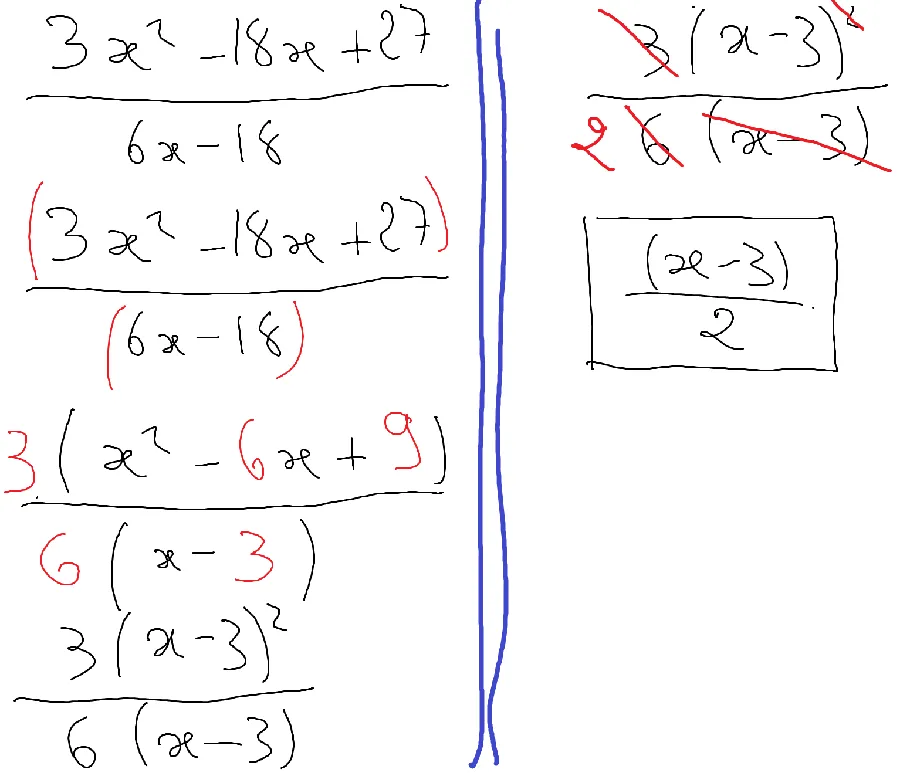 3x² - 18x + 27
6x - 18
(3x² - 18x + 27)
(6x - 18)
3(x² - 6x + 9)
6(x - 3)
3(x-3)²
6(x-3)
3(x-3)²
2 6(x-3)
(x-3)
2